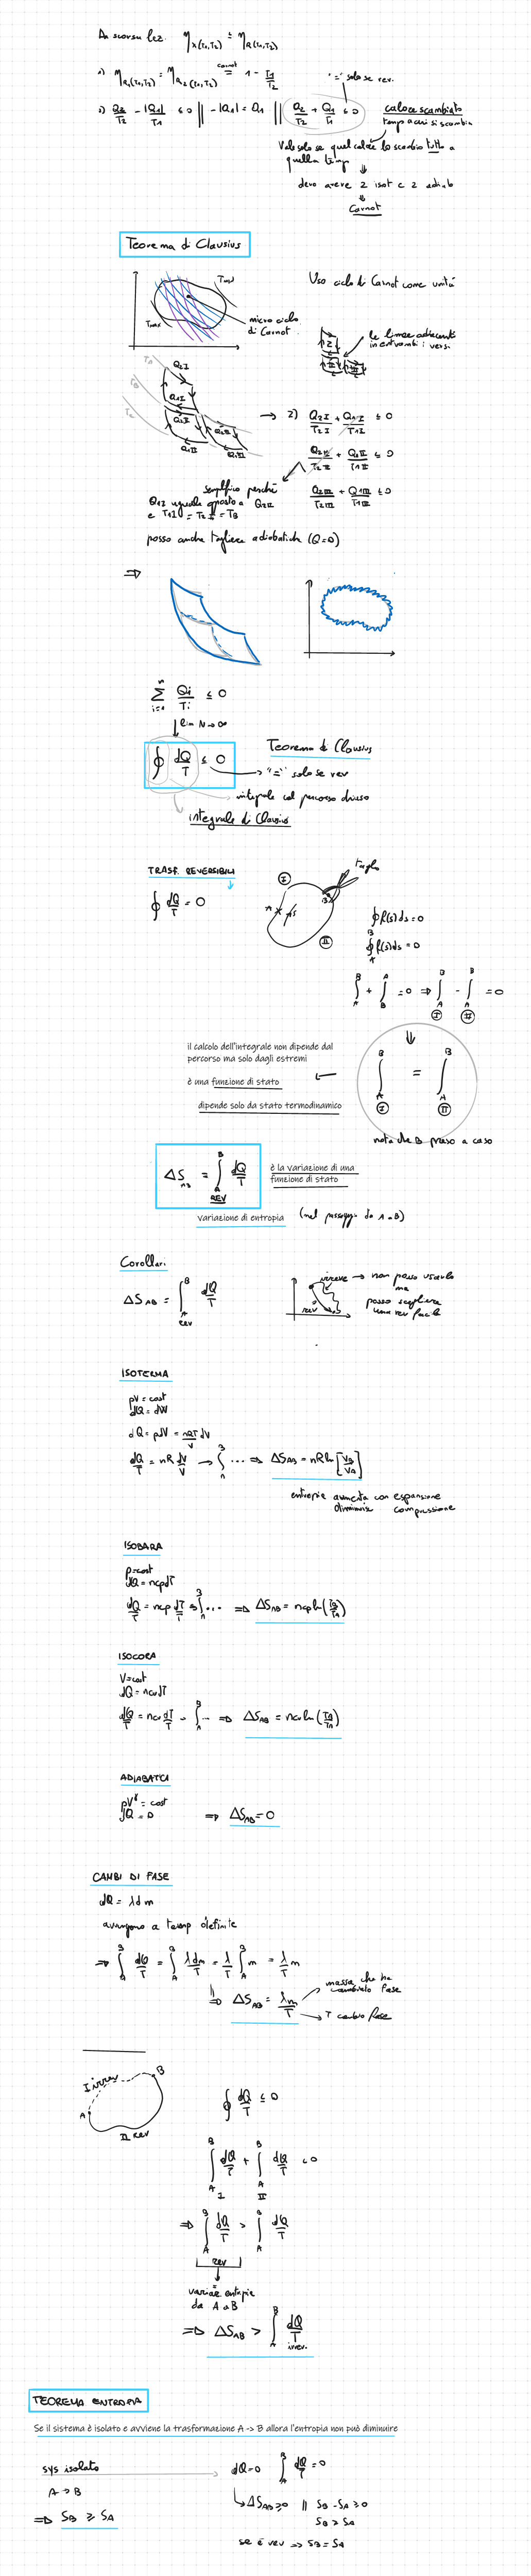 Da scorsa lez. η_X(T1,T2) ≤ η_R(T1,T2)
1) η_R1(T1,T2) = η_R2(T1,T2) =^carnot 1 - T1/T2
"=" solo se rev.
2) Q2/T2 - |Q1|/T1 ≤ 0 || -|Q1| = Q1 || Q2/T2 + Q1/T1 ≤ 0
calore scambiato
temp a cui si scambia
Vale solo se quel calore lo scambio tutto a
quella temp
⇓
devo avere 2 isot e 2 adiab
⇓
Carnot
Teorema di Clausius
Uso ciclo di Carnot come unità
Tmax
micro ciclo
di Carnot
le linee adiacenti
in entrambi i versi
Q2I
Q1I
Q1II
→ 2) Q2I/T2I + Q1I/T1I ≤ 0
Q2II/T2II + Q1II/T1II ≤ 0
Q2III/T2III + Q1III/T1III ≤ 0
semplifico perché
Q1I uguale opposto a Q2II
e T1I = T2II = TB
posso anche togliere adiabatiche (Q=0)
⇒
∑ i=1 n Qi/Ti ≤ 0
↓ lim N→∞
∮ dQ/T ≤ 0
Teorema di Clausius
"=" solo se rev
integrale col percorso chiuso
integrale di Clausius
TRASF. REVERSIBILI
∮ dQ/T = 0
taglio
I
A
B
ds
II
∮ f(s) ds = 0
∮ f(s) ds = 0
∫_A^B + ∫_B^A = 0 ⇒ ∫_A^B I - ∫_A^B II = 0
⇓
∫_A^B I = ∫_A^B II
il calcolo dell'integrale non dipende dal
percorso ma solo dagli estremi
è una funzione di stato
dipende solo da stato termodinamico
nota che B preso a caso
ΔS_AB = ∫_A^B REV dQ/T
è la variazione di una
funzione di stato
variazione di entropia (nel passaggio da A a B)
Corollari
ΔS_AB = ∫_A^B rev dQ/T
irrev → non posso usarla
ma
posso scegliere
una rev facile
rev
ISOTERMA
pV = cost
dQ = dW
dQ = pdV = nRT/V dV
dQ/T = nR dV/V → ∫_A^B ... ⇒ ΔS_AB = nR ln [VB/VA]
entropia aumenta con espansione
diminuisce compressione
ISOBARA
p=cost
dQ = ncpdT
dQ/T = ncp dT/T → ∫_A^B ... ⇒ ΔS_AB = ncp ln (TB/TA)
ISOCORA
V=cost
dQ = ncvdT
dQ/T = ncv dT/T → ∫_A^B ... ⇒ ΔS_AB = ncv ln (TB/TA)
ADIABATICI
pV^γ = cost
dQ = 0 ⇒ ΔS_AB = 0
CAMBI DI FASE
dQ = λdm
avvengono a temp definite
⇒ ∫_A^B dQ/T = ∫_A^B λdm/T = λ/T ∫_A^B m = λ/T m
⇒ ΔS_AB = λm/T
massa che ha
cambiato fase
T cambio fase
I irrev
B
A
II rev
∮ dQ/T ≤ 0
∫_A^B I dQ/T + ∫_A^B II dQ/T < 0
⇒ ∫_A^B dQ/T > ∫_A^B dQ/T
rev
variaz entropie
da A a B
⇒ ΔS_AB > ∫_A^B dQ/T irrev.
TEOREMA ENTROPIA
Se il sistema è isolato e avviene la trasformazione A -> B allora l'entropia non può diminuire
sys isolato → dQ=0 ∫_A^B dQ/T = 0
A → B
↳ ΔS_AB ≥ 0 || SB - SA ≥ 0
⇒ SB ≥ SA
SB > SA
se è rev ⇒ SB = SA